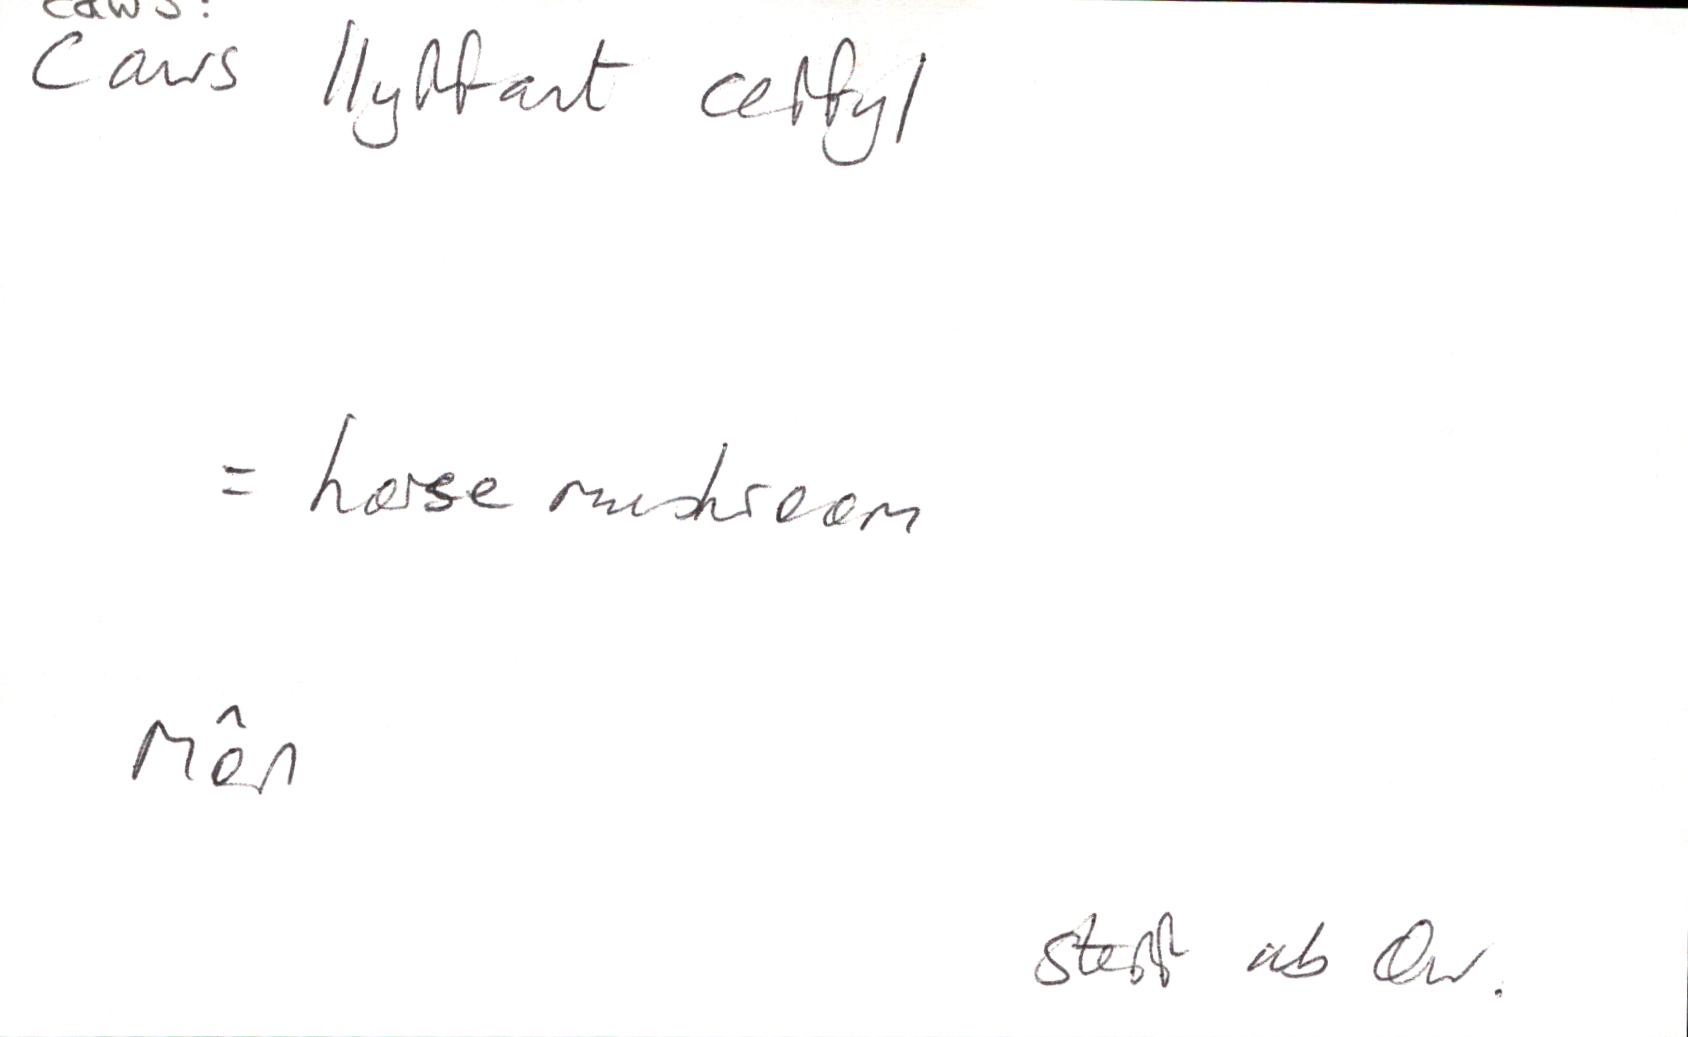 caws:
Caws llyffant ceffyl
= horse mushroom
Môn
Steff ab Ow.